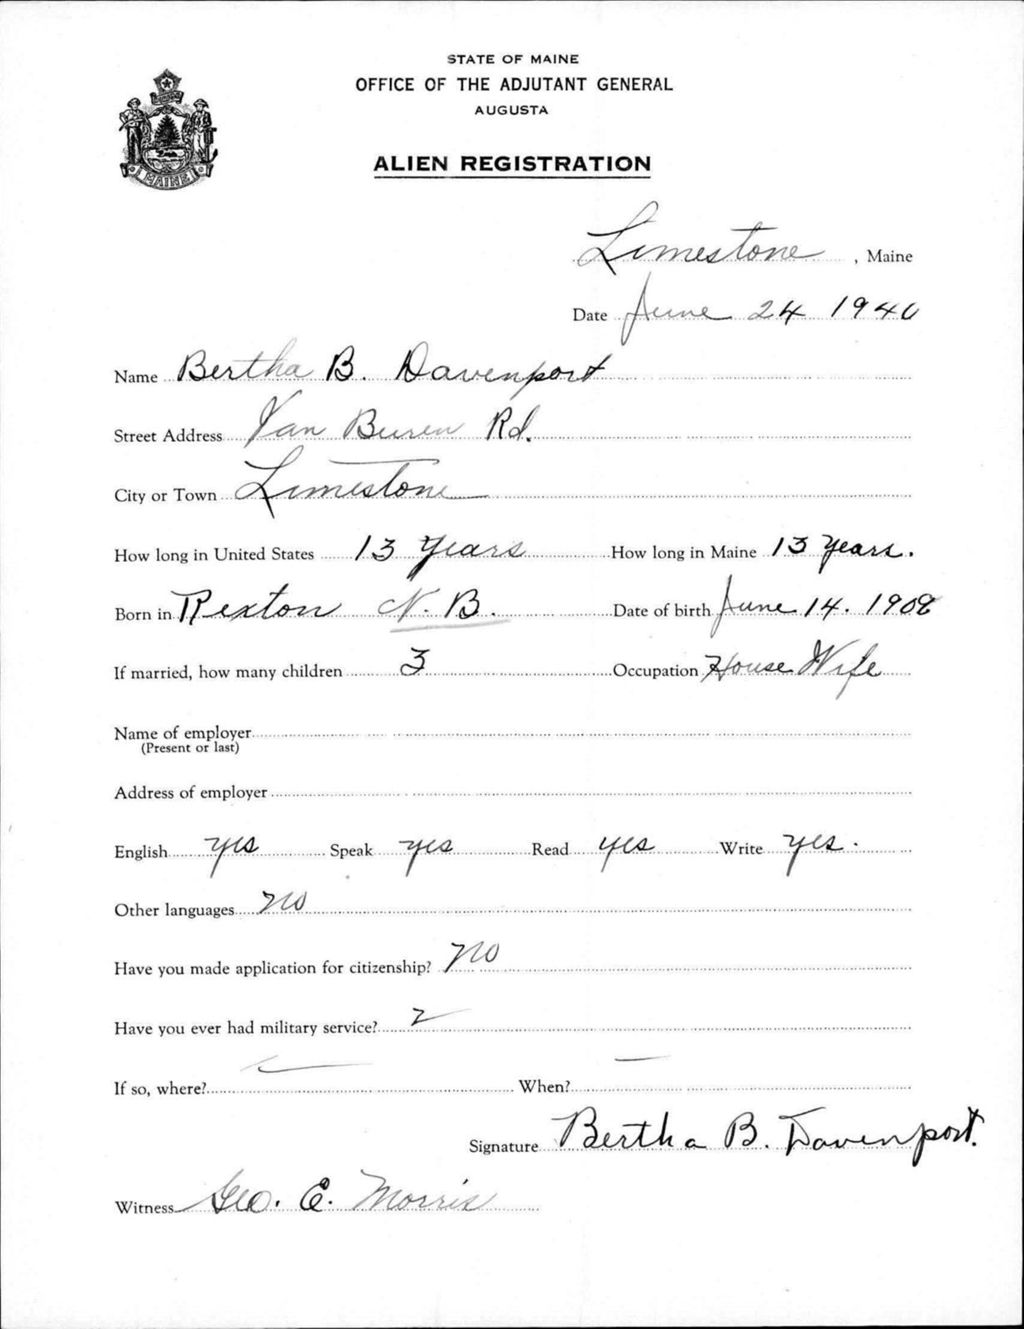 STATE OF MAINE
OFFICE OF THE ADJUTANT GENERAL
AUGUSTA
ALIEN REGISTRATION
MAINE
Limestone, Maine
Date June 24 1940
Name Bertha B. Davenport
Street Address Van Buren Rd.
City or Town Limestone
How long in United States 13 years How long in Maine 13 years.
Born in Rexton N.B. Date of birth June 14. 1908
If married, how many children 3 Occupation House Wife
Name of employer
(Present or last)
Address of employer
English yes Speak yes Read yes Write yes.
Other languages no
Have you made application for citizenship? no
Have you ever had military service?
If so, where? — When? —
Signature Bertha B. Davenport.
Witness Geo. E. Morris